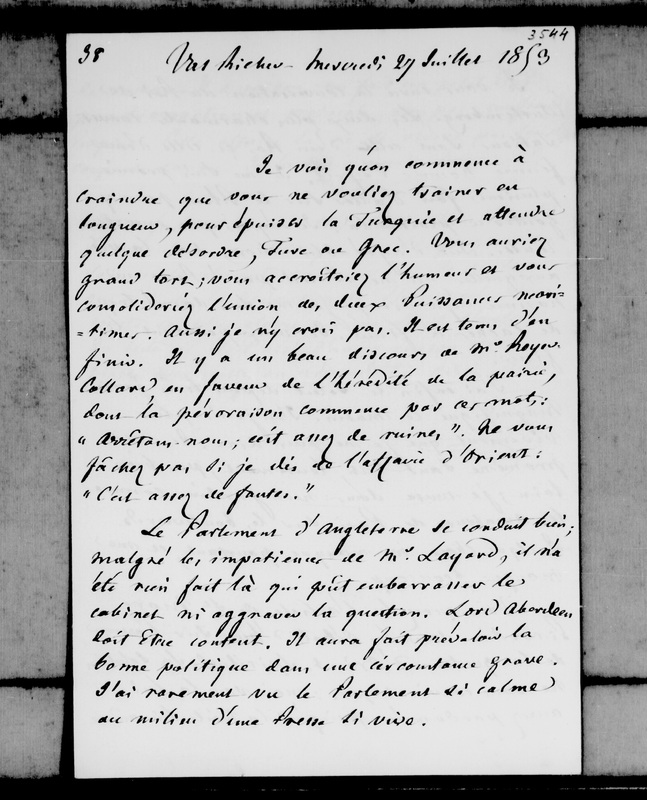 3544
38 Val Richer Mercredi 27 Juillet 1853
Je vois qu'on commence à
craindre que vous ne vouliez trainer en
longueur, pour épuiser la Turquie et attendre
quelque désordre, Turc ou Grec. Vous auriez
grand tort ; vous accroîtriez l'humeur et vous
consolideriez l'union des deux Puissances mari-
-times. Aussi je n'y crois pas. Il est tems d'en
finir. Il y a un beau discours de Mr. Royer
Collard en faveur de l'hérédité de la pairie,
dont la péroraison commence par ces mots :
"Arrêtons-nous ; c'est assez de ruines". Ne vous
fâchez pas si je dis de l'affaire d'Orient :
"C'est assez de fautes."
Le Parlement d'Angleterre se conduit bien ;
malgré les impatiences de Mr. Layard, il n'a
été rien fait là qui pût embarrasser le
cabinet ni aggraver la question. Lord Aberdeen
doit être content. Il aura fait prévaloir la
bonne politique dans une circonstance grave.
J'ai rarement vu le Parlement si calme
au milieu d'une Presse si vive.